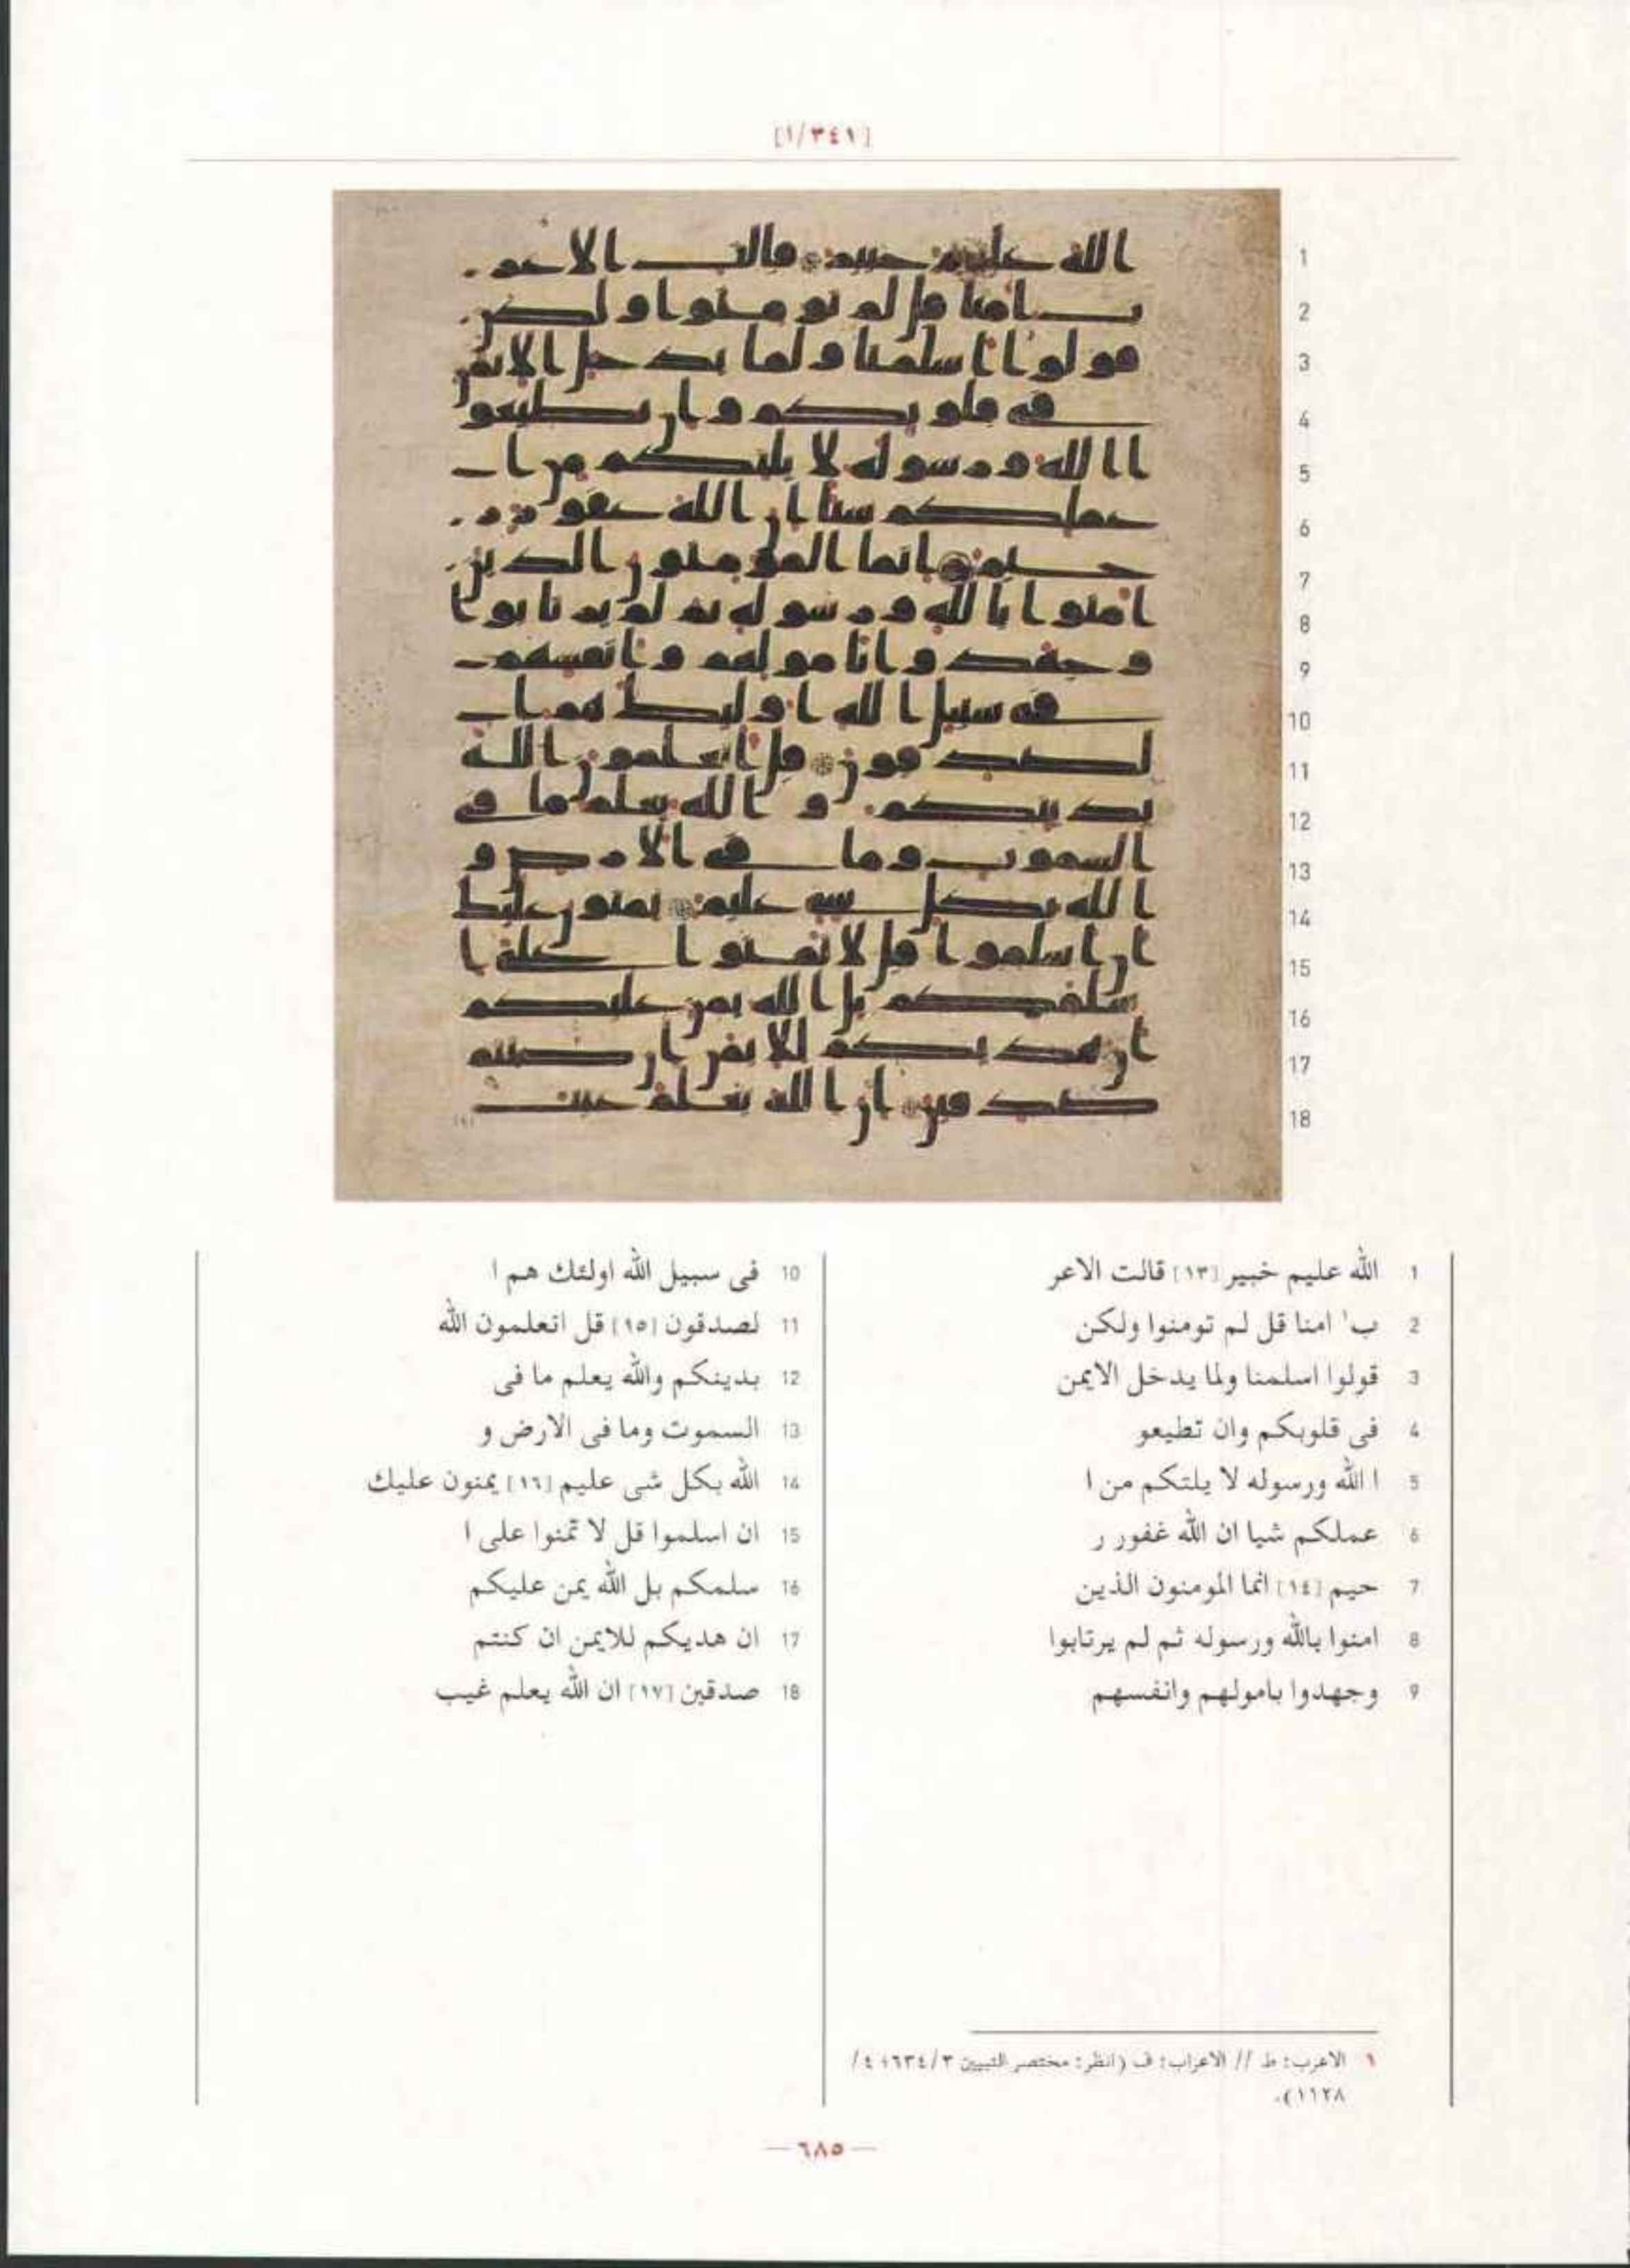 [٣٤١/١]
1 الله عليم خبير [١٣] قالت الاعر
2 ب١ امنا قل لم تومنوا ولكن
3 قولوا اسلمنا ولما يدخل الايمن
4 فى قلوبكم وان تطيعو
5 ا الله ورسوله لا يلتكم من ا
6 عملكم شيا ان الله غفور ر
7 حيم [١٤] انما المومنون الذين
8 امنوا بالله ورسوله ثم لم يرتابوا
9 وجهدوا بامولهم وانفسهم
10 فى سبيل الله اولئك هم ا
11 لصدقون [١٥] قل اتعلمون الله
12 بدينكم والله يعلم ما فى
13 السموت وما فى الارض و
14 الله بكل شى عليم [١٦] يمنون عليك
15 ان اسلموا قل لا تمنوا على ا
16 سلمكم بل الله يمن عليكم
17 ان هديكم للايمن ان كنتم
18 صدقين [١٧] ان الله يعلم غيب
١ الاعرب: ط // الاعراب: ف (انظر: مختصر التبيين ٣/٦٣٤؛ ٤/
١١٢٨).
— ٦٨٥ —